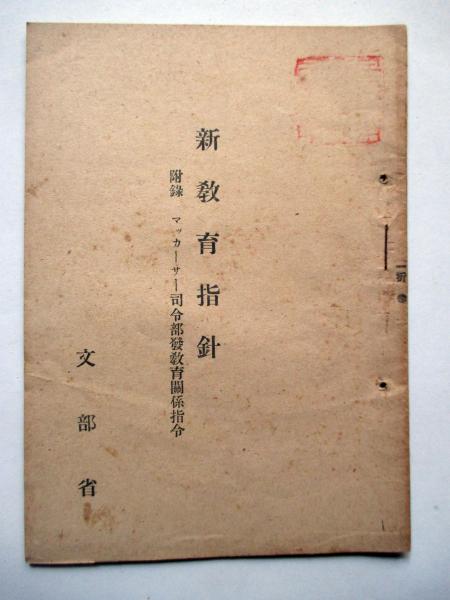 新敎育指針
附錄 マッカーサー司令部發敎育關係指令
文部省